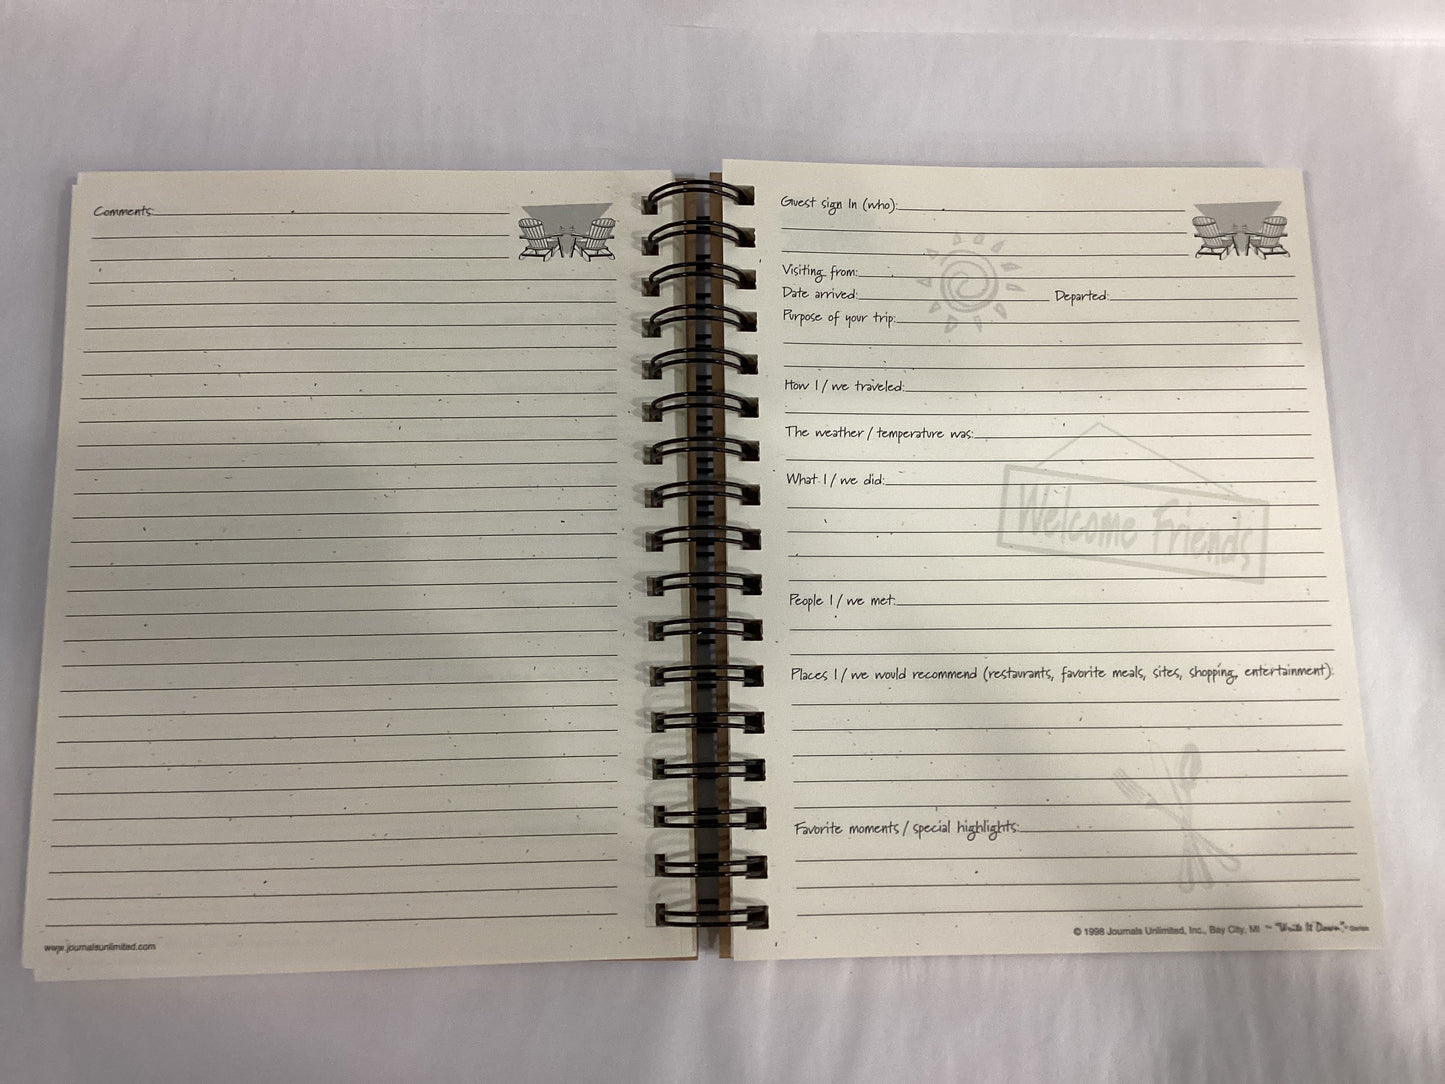 Comments:
www.journalsunlimited.com
Guest sign In (who):
Visiting from:
Date arrived: Departed:
Purpose of your trip:
How I / we traveled:
The weather / temperature was:
What I / we did:
Welcome Friends
People I / we met:
Places I / we would recommend (restaurants, favorite meals, sites, shopping, entertainment):
Favorite moments / special highlights:
© 1998 Journals Unlimited, Inc., Bay City, MI ~ "Write It Down"~ Series